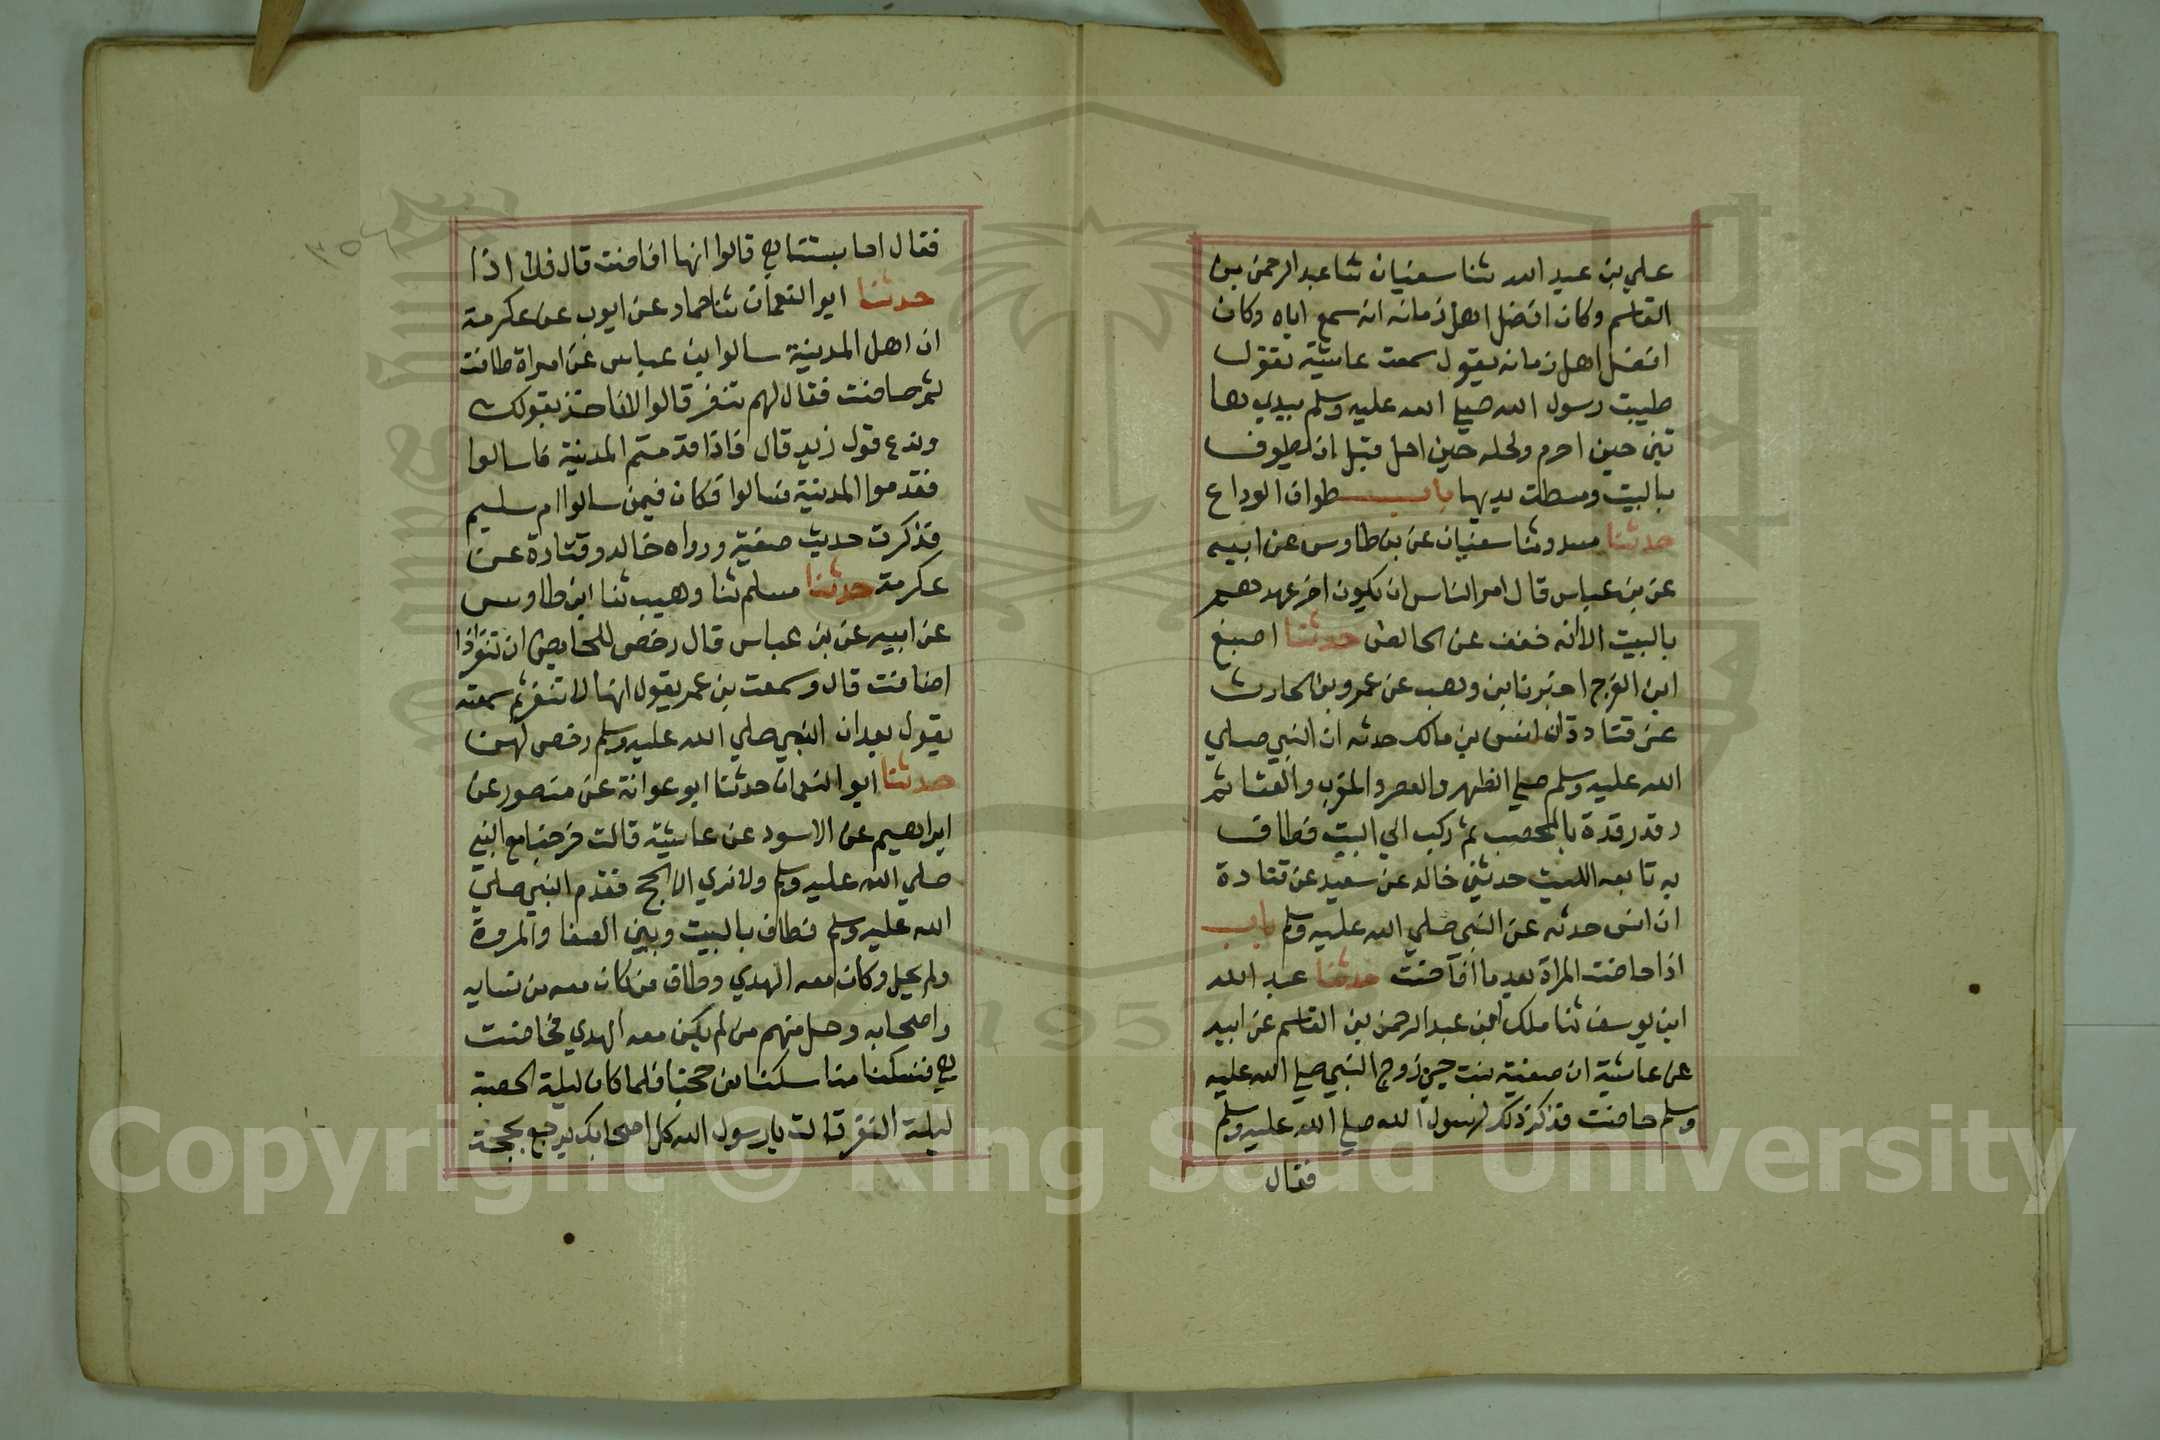 علي بن عبد الله ثنا سفيان ثنا عبد الرحمن بن
القاسم وكان افضل اهل زمانه انه سمع اباه وكان
افضل اهل زمانه يقول سمعت عايشة تقول
طيبت رسول الله صلي الله عليه وسلم بيدي ها
تين حين احرم ولحله حين احل قبل ان يطوف
بالبيت وبسطت يديها باب طواف الوداع
حدثنا مسدد ثنا سفيان عن بن طاوس عن ابيه
عن بن عباس قال امر الناس ان يكون اخر عهدهم
بالبيت الا انه خفف عن الحائض حدثنا اصبغ
ابن الفرج اخبرنا بن وهب عن عمرو بن الحارث
عن قتادة ان انس بن مالك حدثه ان النبي صلي
الله عليه وسلم صلي الظهر والعصر والمغرب والعشا ثم
رقد رقدة بالمحصب ثم ركب الي البيت فطاف
به تابعه الليث حدثني خالد عن سعيد عن قتادة
ان انس حدثه عن النبي صلي الله عليه وسلم باب
اذا حاضت المراة بعد ما افاضت حدثنا عبد الله
ابن يوسف ثنا ملك عن عبد الرحمن بن القاسم عن ابيه
عن عايشة ان صفية بنت حيي زوج النبي صلي الله عليه
وسلم حاضت فذكر ذلك لرسول الله صلي الله عليه وسلم
فقال
فقال احابستنا هي قالوا انها افاضت قال فلا اذا
حدثنا ابو النعمان ثنا حماد عن ايوب عن عكرمة
ان اهل المدينة سالوا بن عباس عن امراة طافت
ثم حاضت فقال لهم تنفر قالوا لا ناخذ بقولك
وندع قول زيد قال فاذا قدمتم المدينة فاسالوا
فقدموا المدينة فسالوا فكان فيمن سالوا ام سليم
فذكرت حديث صفية ورواه خالد وقتادة عن
عكرمة حدثنا مسلم ثنا وهيب ثنا ابن طاوس
عن ابيه عن بن عباس قال رخص للحايض ان تنفر اذا
افاضت قال وسمعت بن عمر يقول انها لا تنفر ثم سمعته
يقول بعد ان النبي صلي الله عليه وسلم رخص لهن
حدثنا ابو النعمان حدثنا ابو عوانة عن منصور عن
ابراهيم عن الاسود عن عايشة قالت خرجنا مع النبي
صلي الله عليه وسلم ولا نري الا الحج فقدم النبي صلي
الله عليه وسلم فطاف بالبيت وبين الصفا والمروة
ولم يحل وكان معه الهدي وطاف من كان معه من نسايه
واصحابه وحل منهم من لم يكن معه الهدي فحاضت
هي فنسكنا مناسكنا من حجنا فلما كان ليلة الحصبة
ليلة النفر قالت يا رسول الله كل اصحابك يرجع بحجة
Copyright © King Saud University
1957